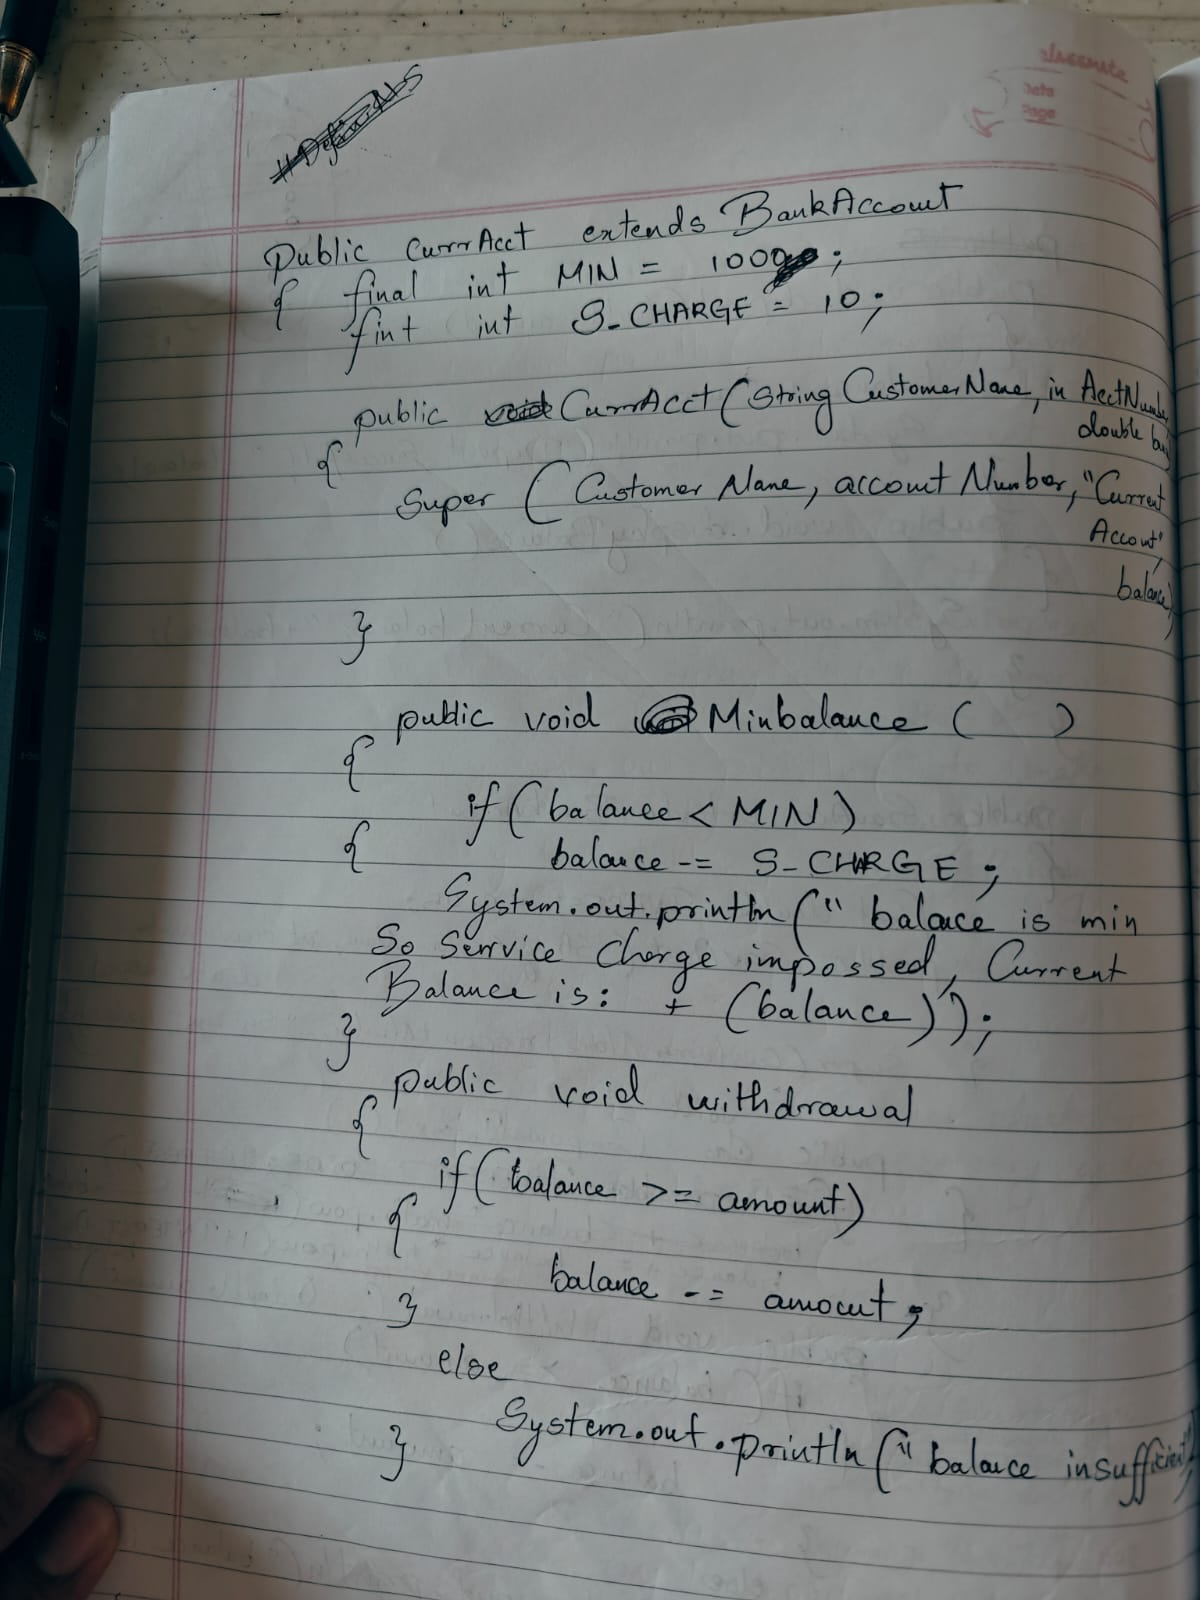 classmate
Date
Page
Public CurrAcct extends BankAccount
{ final int MIN = 1000 ;
fint int S_CHARGE = 10;
public CurrAcct (String CustomerName, in AcctNumber
double
{
Super ( Customer Name, account Number, "Current
Account",
balance)
}
public void Minbalance ( )
{
if (balance < MIN)
{ balance -= S_CHARGE ;
System.out.println (" balace is min
So Serrvice Charge impossed, Current
Balance is: + (balance));
}
public void withdrawal
{
if (balance >= amount)
{
balance -= amount ;
}
else
System.out.println (" balance insufficient"
}